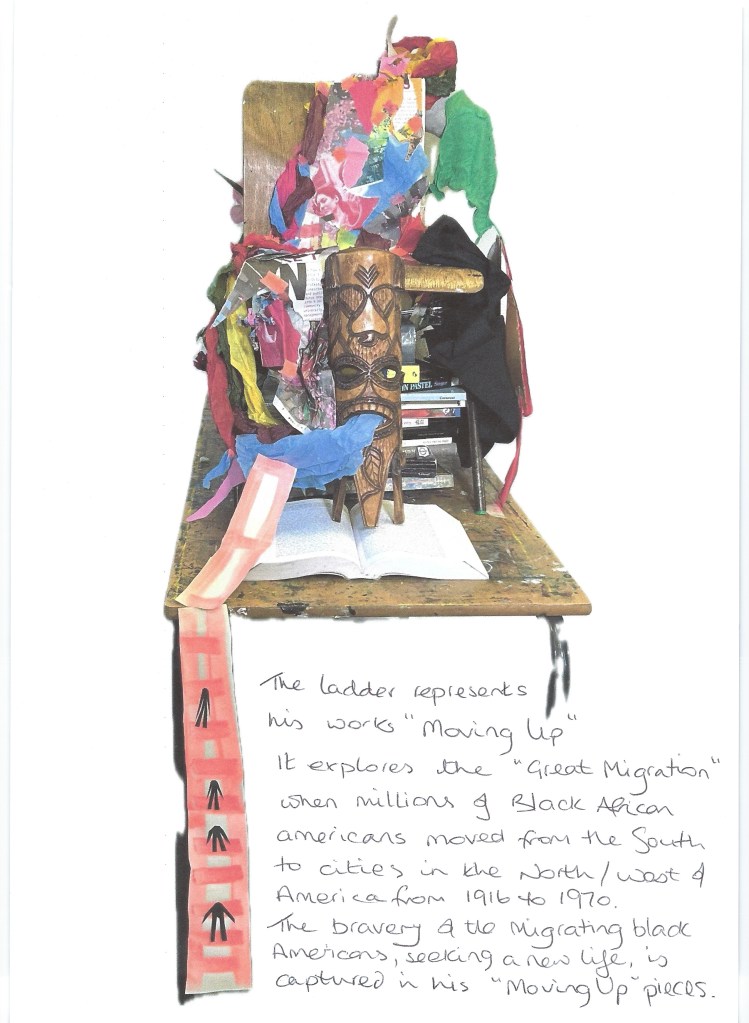 N
IN PASTEL
The ladder represents
his works "Moving Up"
It explores the "Great Migration"
when millions of Black African
americans moved from the South
to cities in the North/West of
America from 1916 to 1970.
The bravery of the migrating black
Americans, seeking a new life, is
captured in his "Moving Up" pieces.